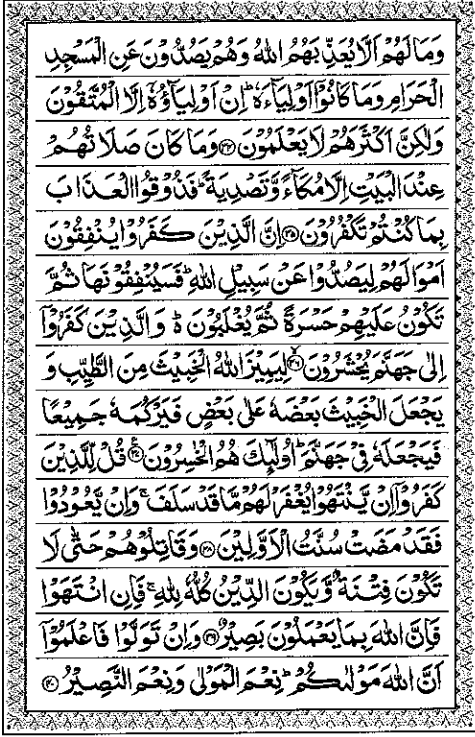 وَمَا لَهُمۡ اَلَّا يُعَذِّبَهُمُ اللّٰهُ وَهُمۡ يَصُدُّوۡنَ عَنِ الۡمَسۡجِدِ
الۡحَـرَامِ وَمَا كَانُوۡۤا اَوۡلِيَآءَهٗ‌ ؕ اِنۡ اَوۡلِيَآؤُهٗۤ اِلَّا الۡمُتَّقُوۡنَ
وَلٰـكِنَّ اَكۡثَرَهُمۡ لَا يَعۡلَمُوۡنَ‏ ﴿۳۴﴾ وَمَا كَانَ صَلَاتُهُمۡ
عِنۡدَ الۡبَيۡتِ اِلَّا مُكَآءً وَّتَصۡدِيَةً‌ ؕ فَذُوۡقُوا الۡعَذَابَ
بِمَا كُنۡتُمۡ تَكۡفُرُوۡنَ‏ ﴿۳۵﴾ اِنَّ الَّذِيۡنَ كَفَرُوۡا يُنۡفِقُوۡنَ
اَمۡوَالَهُمۡ لِيَـصُدُّوۡا عَنۡ سَبِيۡلِ اللّٰهِ‌ ؕ فَسَيُنۡفِقُوۡنَهَا ثُمَّ
تَكُوۡنُ عَلَيۡهِمۡ حَسۡرَةً ثُمَّ يُغۡلَبُوۡنَ ؕ وَالَّذِيۡنَ كَفَرُوۡۤا
اِلٰى جَهَـنَّمَ يُحۡشَرُوۡنَۙ‏ ﴿۳۶﴾ لِيَمِيۡزَ اللّٰهُ الۡخَبِيۡثَ مِنَ الطَّيِّبِ وَ
يَجۡعَلَ الۡخَبِيۡثَ بَعۡضَهٗ عَلٰى بَعۡضٍ فَيَرۡكُمَهٗ جَمِيۡعًا
فَيَجۡعَلَهٗ فِىۡ جَهَـنَّمَ‌ ؕ اُولٰٓٮِٕكَ هُمُ الۡخٰسِرُوۡنَ‏ ﴿۳۷﴾ قُلْ لِّلَّذِيۡنَ
كَفَرُوۡۤا اِنۡ يَّنۡتَهُوۡا يُغۡفَرۡ لَهُمۡ مَّا قَدۡ سَلَفَۚ وَاِنۡ يَّعُوۡدُوۡا
فَقَدۡ مَضَتۡ سُنَّتُ الۡاَوَّلِيۡنَ‏ ﴿۳۸﴾ وَقَاتِلُوۡهُمۡ حَتّٰى لَا
تَكُوۡنَ فِتۡنَةٌ وَّيَكُوۡنَ الدِّيۡنُ كُلُّهٗ لِلّٰهِ‌ۚ فَاِنِ انْـتَهَوۡا
فَاِنَّ اللّٰهَ بِمَا يَعۡمَلُوۡنَ بَصِيۡرٌ‏ ﴿۳۹﴾ وَاِنۡ تَوَلَّوۡا فَاعۡلَمُوۡۤا
اَنَّ اللّٰهَ مَوۡلٰٮكُمۡ‌ؕ نِعۡمَ الۡمَوۡلٰى وَنِعۡمَ النَّصِيۡرُ‏ ﴿۴۰﴾